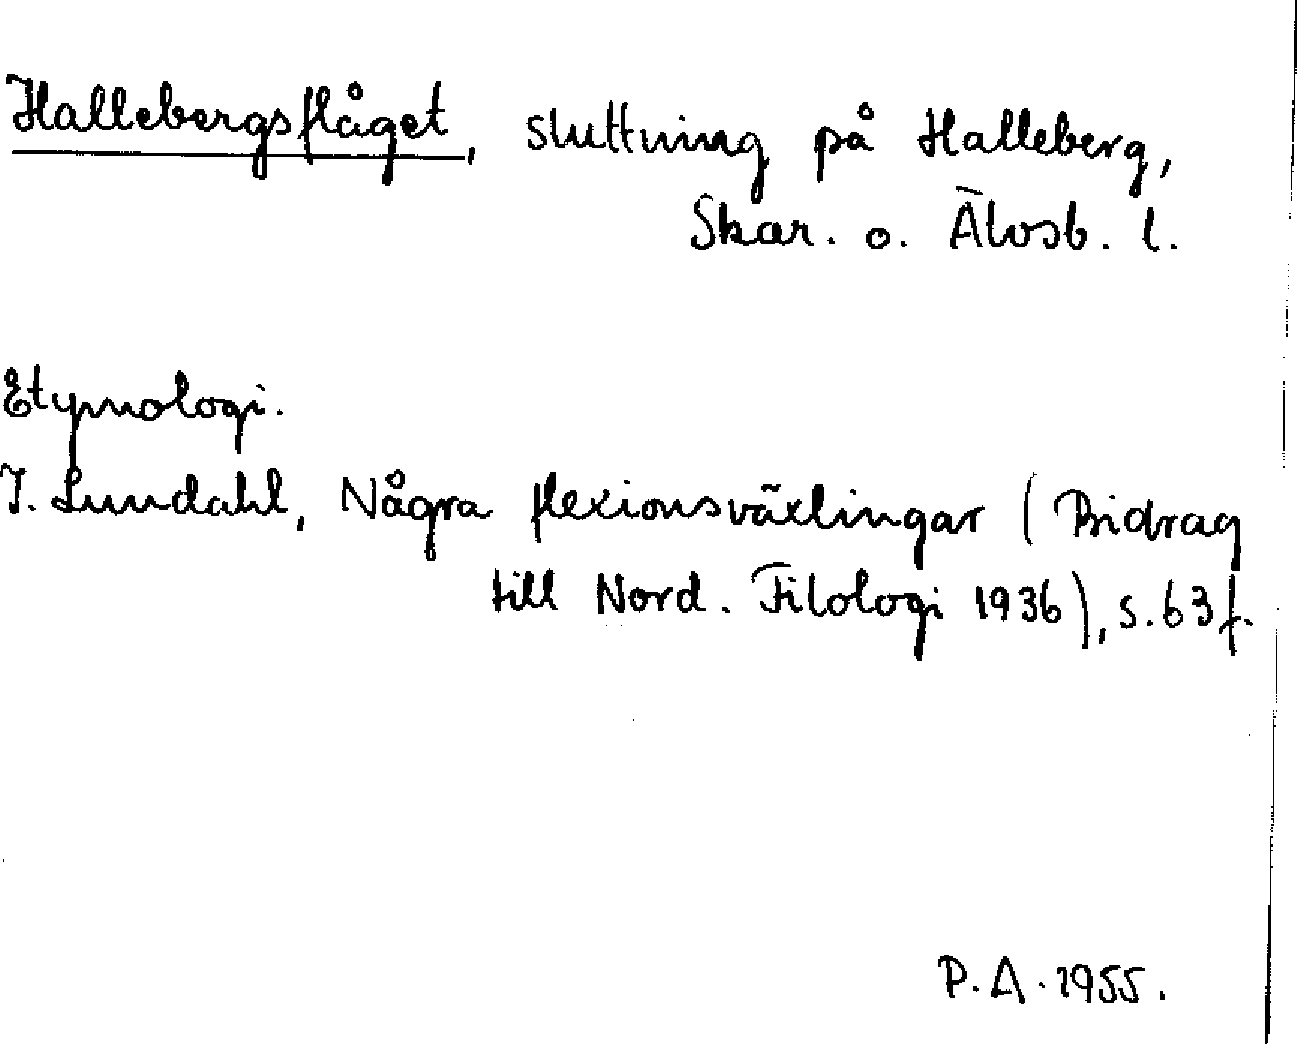 Hallebergsflåget, sluttning på Halleberg,
Skar. o. Älvsb. l.
Etymologi.
I. Lundahl, Några flexionsväxlingar (Bidrag
till Nord. Filologi 1936), s. 63 f.
P. A. 1955.